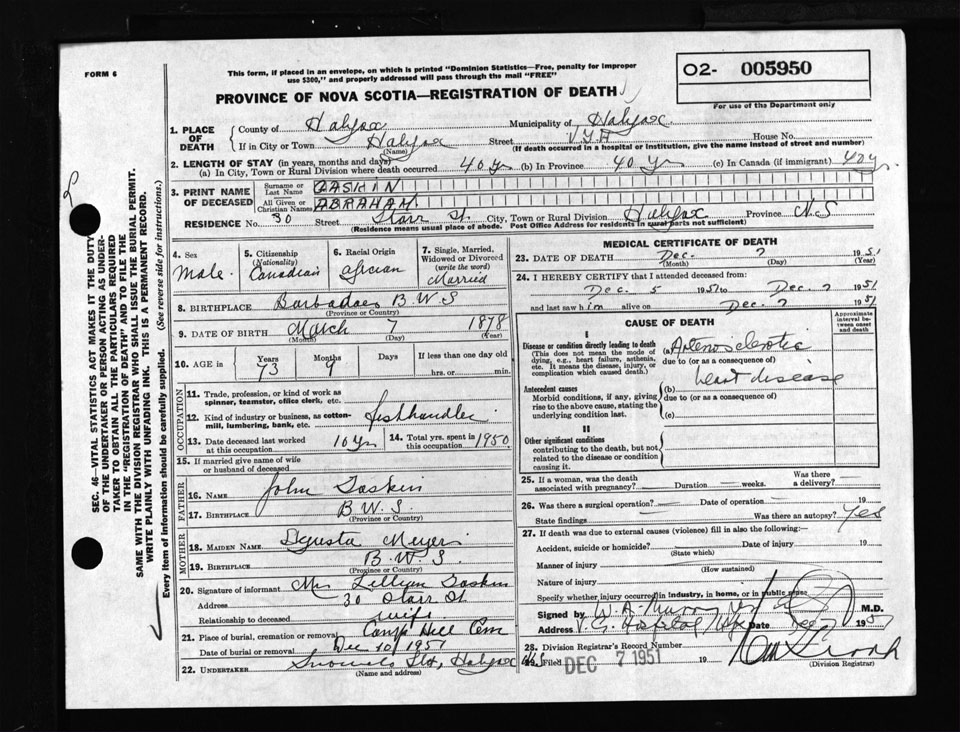 FORM 6
This form, if placed in an envelope, on which is printed "Dominion Statistics—Free, penalty for improper
use $300," and properly addressed will pass through the mail "FREE"
O2- 005950
For use of the Department only
PROVINCE OF NOVA SCOTIA—REGISTRATION OF DEATH
1. PLACE OF DEATH
County of Halifax Municipality of Halifax
If in City or Town Halifax (Name) Street V.G.H House No.
(If death occurred in a hospital or institution, give the name instead of street and number)
2. LENGTH OF STAY (in years, months and days)
(a) In City, Town or Rural Division where death occurred 40 y (b) In Province 40 yr (c) In Canada (if immigrant) 40 y.
3. PRINT NAME OF DECEASED
Surname or Last Name GASKIN
All Given or Christian Names ABRAHAM
RESIDENCE No. 30 Street Starr St. City, Town or Rural Division Halifax Province N.S
(Residence means usual place of abode. Post Office Address for residents in rural parts not sufficient)
4. Sex Male.
5. Citizenship (Nationality) Canadian
6. Racial Origin African
7. Single, Married, Widowed or Divorced (write the word) Married
8. BIRTHPLACE Barbadoes B.W.S
(Province or Country)
9. DATE OF BIRTH March 7 1878
(Month) (Day) (Year)
10. AGE in Years 73 Months 9 Days If less than one day old hrs. or min.
OCCUPATION
11. Trade, profession, or kind of work as spinner, teamster, office clerk, etc.
12. Kind of industry or business, as cotton-mill, lumbering, bank, etc. fishhandler
13. Date deceased last worked at this occupation 10 yr 14. Total yrs. spent in this occupation 1950
15. If married give name of wife or husband of deceased
FATHER
16. NAME John Gaskin
17. BIRTHPLACE B.W.S.
(Province or Country)
MOTHER
18. MAIDEN NAME Meyer
19. BIRTHPLACE B.W.S.
(Province or Country)
20. Signature of informant Mrs Lillian Gaskin
Address 30 Starr St
Relationship to deceased wife
21. Place of burial, cremation or removal Camp Hill Cem
Date of burial or removal Dec 10/1951
22. UNDERTAKER Snows Halifax
(Name and address)
MEDICAL CERTIFICATE OF DEATH
23. DATE OF DEATH Dec. 7 1951
(Month) (Day) (Year)
24. I HEREBY CERTIFY that I attended deceased from:
Dec. 5 1951 to Dec. 7 1951
and last saw him alive on Dec. 7 1951
CAUSE OF DEATH
Approximate interval between onset and death
I
Disease or condition directly leading to death (a) Arteriosclerotic
(This does not mean the mode of dying, e.g., heart failure, asthenia, etc. It means the disease, injury, or complication which caused death.)
due to (or as a consequence of)
heart disease
Antecedent causes
Morbid conditions, if any, giving rise to the above cause, stating the underlying condition last.
(b)
due to (or as a consequence of)
(c)
II
Other significant conditions
contributing to the death, but not related to the disease or condition causing it.
25. If a woman, was the death associated with pregnancy? — Duration — weeks. Was there a delivery? —
26. Was there a surgical operation? — Date of operation — 19
State findings Was there an autopsy? Yes
27. If death was due to external causes (violence) fill in also the following:—
Accident, suicide or homicide? Date of injury 19
(State which)
Manner of injury
(How sustained)
Nature of injury
Specify whether injury occurred in industry, in home, or in public place
Signed by W. A. Murray M.D.
Address V. G. Hospital Hfx Date Dec 7 1951
28. Division Registrar's Record Number
29. Filed DEC 7 1951 19
(Division Registrar)
SEC. 46—VITAL STATISTICS ACT MAKES IT THE DUTY
OF THE UNDERTAKER OR PERSON ACTING AS UNDER-
TAKER TO OBTAIN ALL THE PARTICULARS REQUIRED
IN THE "REGISTRATION OF DEATH" AND TO FILE THE
SAME WITH THE DIVISION REGISTRAR WHO SHALL ISSUE THE BURIAL PERMIT.
WRITE PLAINLY WITH UNFADING INK. THIS IS A PERMANENT RECORD.
Every item of information should be carefully supplied. (See reverse side for instructions.)